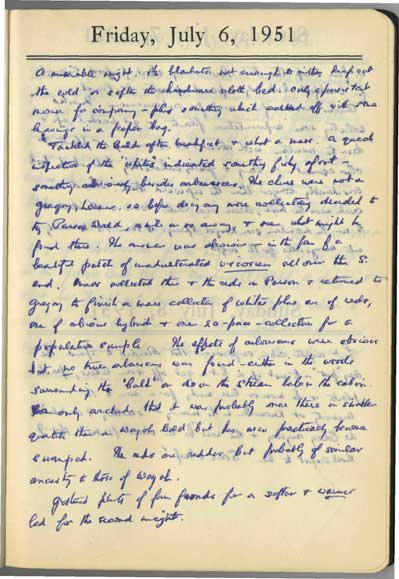 Friday, July 6, 1951
A miserable night. The blankets not enough to either keep out
the cold or soften the hardware cloth bed. Only a persistent
mouse for company - plus something which walked off with some
leavings in a paper bag.
Tackled the Bald after breakfast & what a mess. A quick
inspection of the whites indicated something fishy afoot -
something obviously besides arborescens. The clues were not on
Gregory, however, so before doing any more collecting decided to
try Parson Bald, and see what might be
found there. The answer was obvious - in the form of a
beautiful patch of unadulterated viscosum all over the S.
end. Mass collected this & the reds on Parson & returned to
Gregory to finish a mass collection of whites plus an of reds,
one of obvious hybrids & one 20-pace-collection for a
population sample. The effects of arborescens were obvious
but no true arborescens was found - either in the woods
surrounding the "bald" or down the stream below the cabin.
Can only conclude that it was probably once there in smaller
quantity than on Wayah Bald but has now practically become
swamped. The reds are redder but probably of similar
ancestry to those of Wayah.
Gathered plenty of fern fronds for a softer & warmer
bed for the second night.